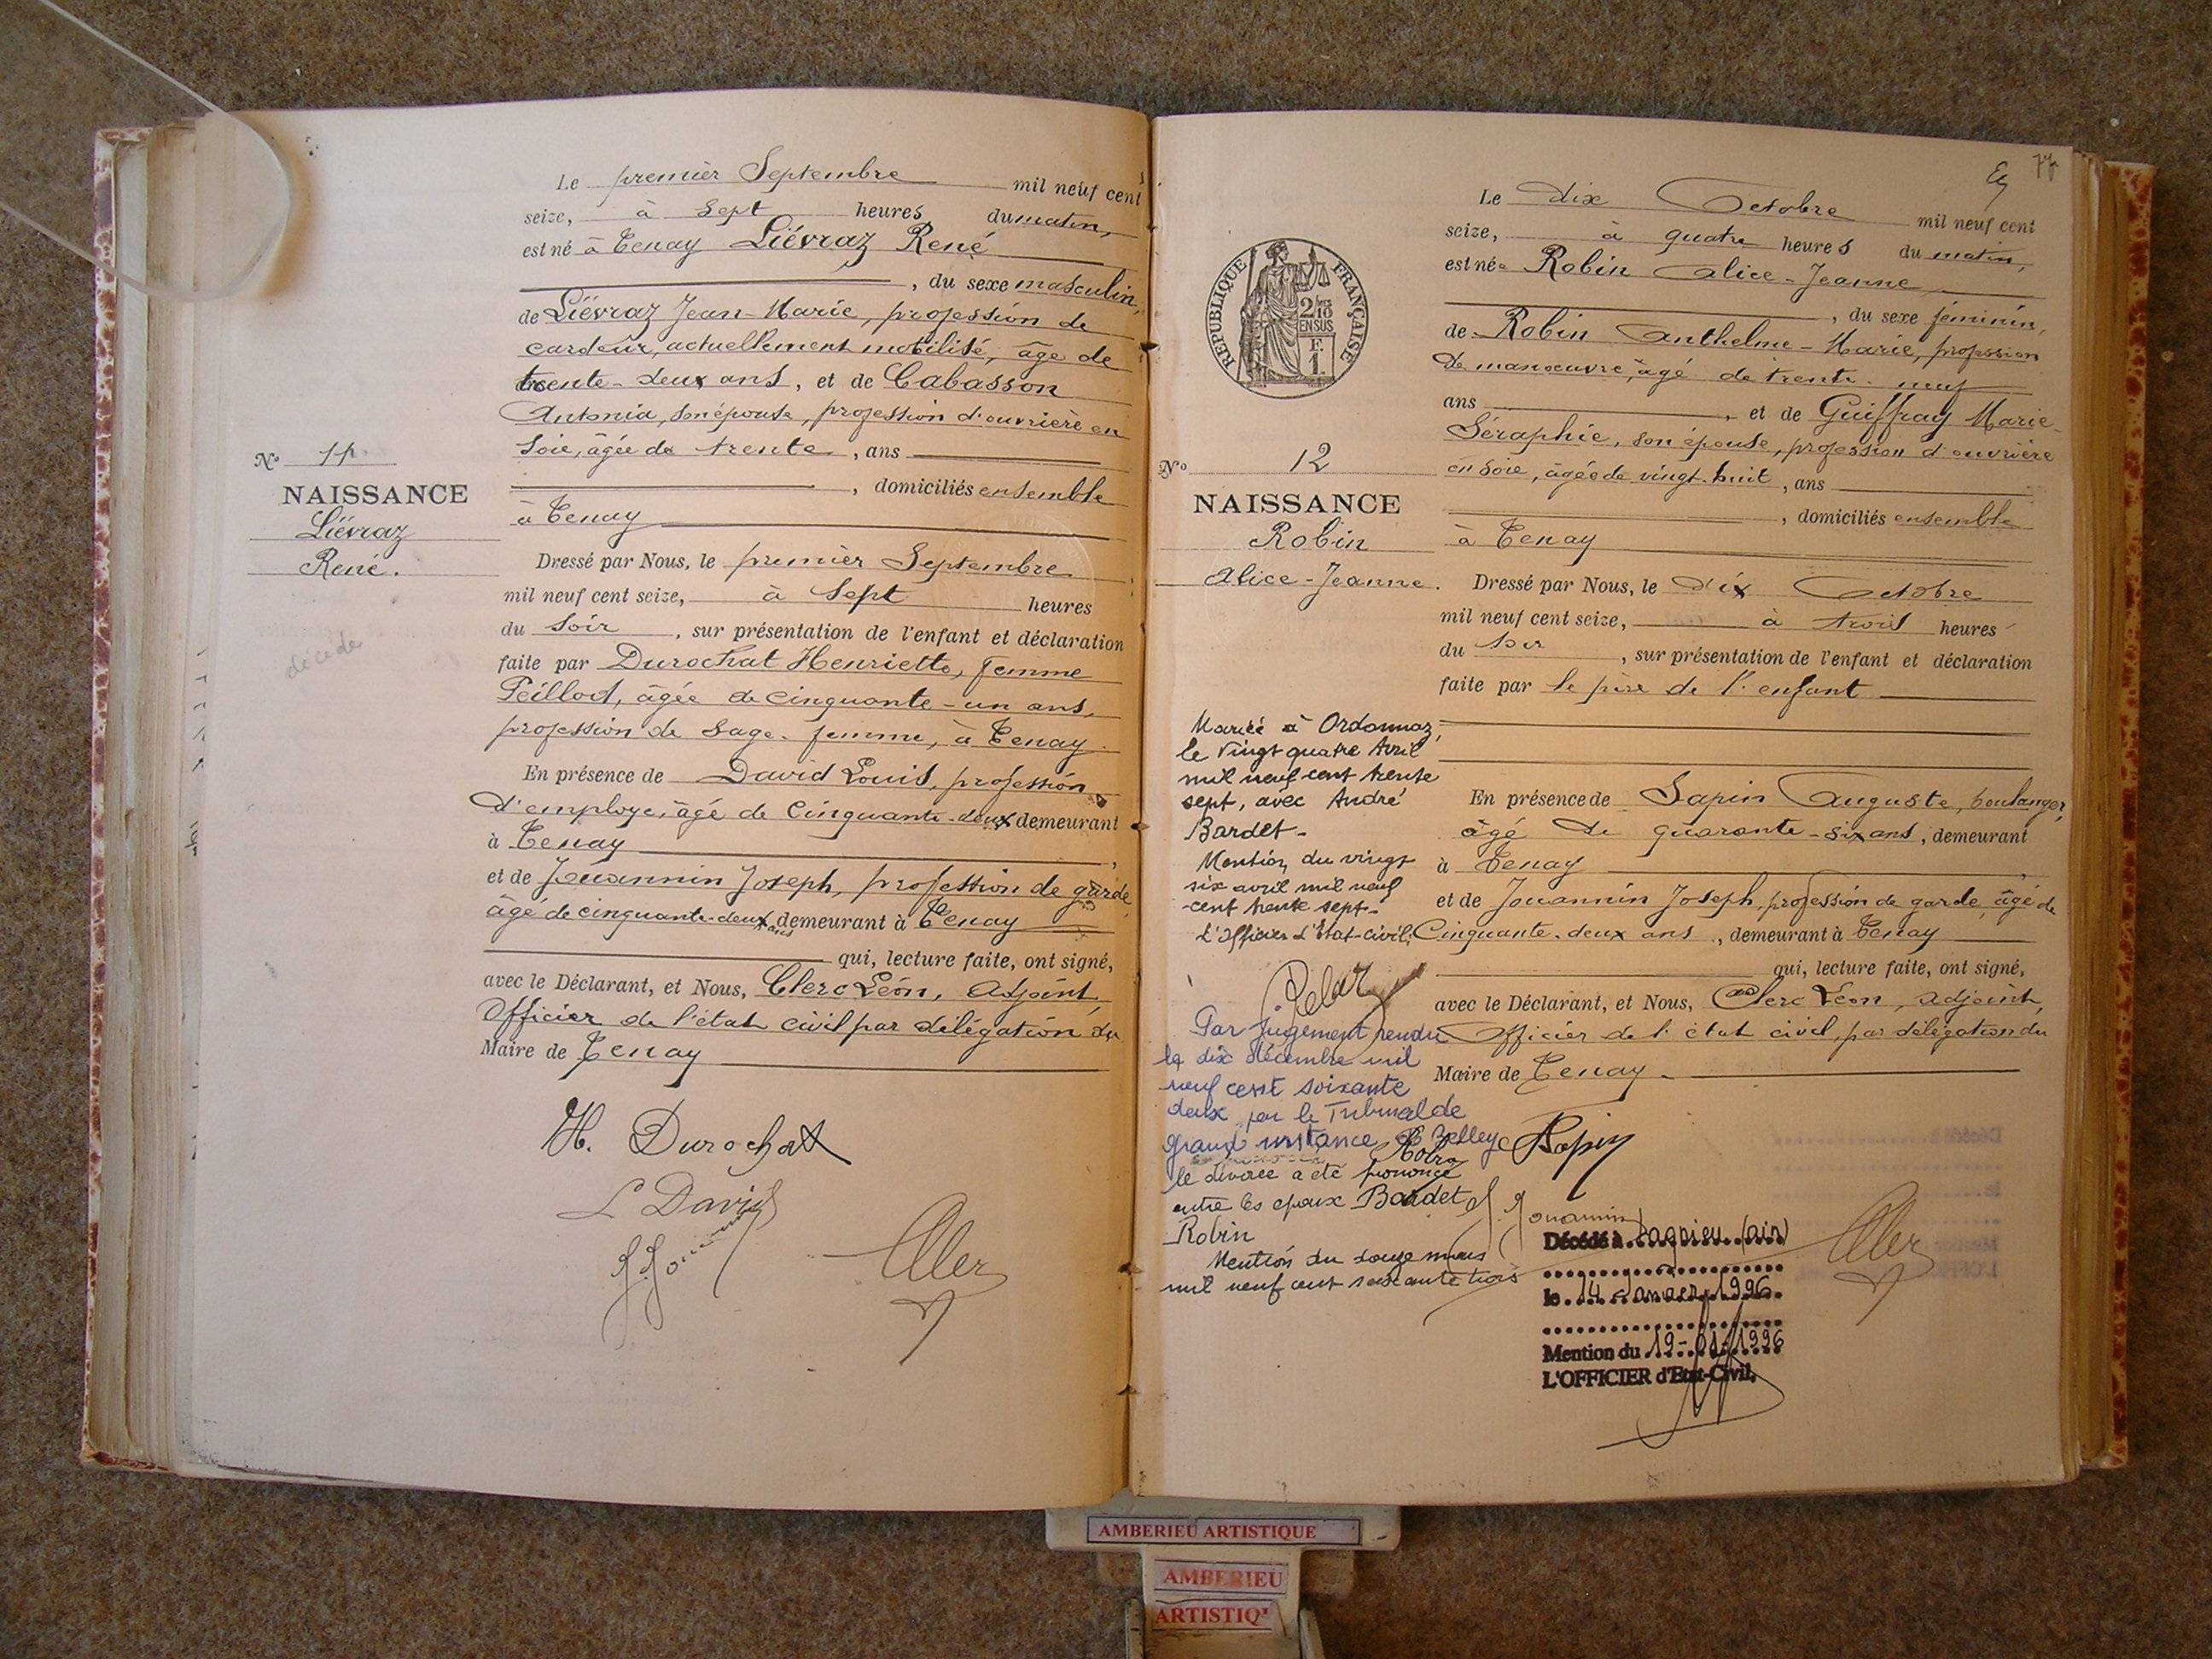 Le premier Septembre mil neuf cent
seize, à sept heures du matin,
est né à Tenay Liévraz René
, du sexe masculin,
de Liévraz Jean-Marie, profession de
cardeur, actuellement mobilisé, âgé de
trente-deux ans, et de Cabasson
Antonia, son épouse, profession d'ouvrière en
soie, âgée de trente, ans
, domiciliés ensemble
à Tenay
Nº 11
NAISSANCE
Liévraz
René.
décédé
Dressé par Nous, le premier Septembre
mil neuf cent seize, à sept heures
du soir, sur présentation de l'enfant et déclaration
faite par Durochat Henriette, femme
Peillod, âgée de cinquante-un ans,
profession de sage-femme, à Tenay.
En présence de David Louis, profession
d'employé, âgé de cinquante-deux demeurant
à Tenay,
et de Jouannin Joseph, profession de garde,
âgé de cinquante-deux ans demeurant à Tenay
qui, lecture faite, ont signé,
avec le Déclarant, et Nous, Clerc Léon, adjoint,
Officier de l'état civil par délégation du
Maire de Tenay
H. Durochat
L David
J. Jouannin
77
Le dix Octobre mil neuf cent
seize, à quatre heures du matin,
est née Robin Alice-Jeanne
, du sexe féminin,
de Robin Anthelme-Marie, profession
de manœuvre, âgé de trente-neuf
ans, et de Guiffray Marie-
Séraphie, son épouse, profession d'ouvrière
en soie, âgée de vingt-huit, ans
, domiciliés ensemble
à Tenay
RÉPUBLIQUE FRANÇAISE
2/10
EN SUS
F.
1.
Nº 12
NAISSANCE
Robin
Alice-Jeanne.
Dressé par Nous, le dix Octobre
mil neuf cent seize, à trois heures
du soir, sur présentation de l'enfant et déclaration
faite par le père de l'enfant
En présence de Sapin Auguste, boulanger,
âgé de quarante-six ans, demeurant
à Tenay,
et de Jouannin Joseph, profession de garde, âgé de
Cinquante-deux ans, demeurant à Tenay
qui, lecture faite, ont signé,
avec le Déclarant, et Nous, Clerc Léon, adjoint,
Officier de l'état civil, par délégation du
Maire de Tenay
Mariée à Ordonnaz,
le vingt quatre Avril
mil neuf cent trente
sept, avec André
Bardet-
Mention du vingt
six avril mil neuf
cent trente sept-
L'officier d'Etat-civil:
Par jugement rendu
le dix décembre mil
neuf cent soixante
deux par le Tribunal de
grande instance de Belley
le divorce a été prononcé
entre les époux Bardet
Robin
Mention du douze mars
mil neuf cent soixante trois
Robin
Sapin
J. Jouannin
Décédé à Lagnieu (Ain)
le 14 Janvier 1996
Mention du 19-01-1996
L'OFFICIER d'Etat-Civil,
AMBERIEU ARTISTIQUE
AMBERIEU
ARTISTIQ